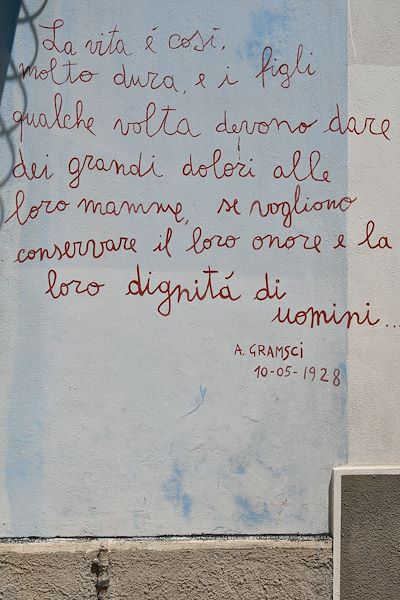 La vita é così,
molto dura, e i figli
qualche volta devono dare
dei grandi dolori alle
loro mamme, se vogliono
conservare il loro onore e la
loro dignitá di
uomini...
A. GRAMSCi
10-05-1928